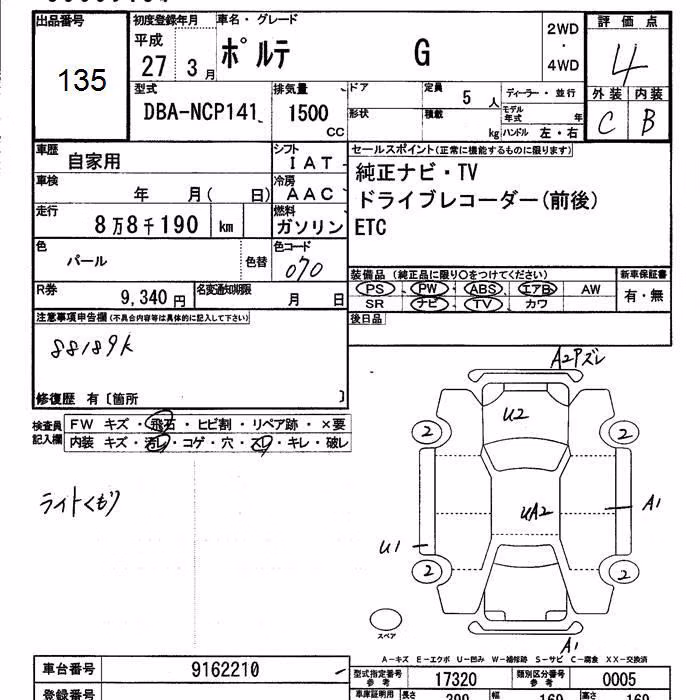 出品番号
135
初度登録年月
平成
27 3月
車名・グレード
ポルテ G
2WD
・
4WD
評価点
4
外装 内装
C B
型式
DBA-NCP141
排気量
1500
CC
ドア
形状
定員
5 人
積載
kg
ディーラー・並行
モデル年式 年
ハンドル 左・右
車歴
自家用
シフト
IAT
車検
年 月( 日)
冷房
AAC
走行
8万8千190 km
燃料
ガソリン
色
パール
色替
色コード
070
R券
9,340 円
名変通知期限
月 日
セールスポイント(正常に機能するものに限ります)
純正ナビ・TV
ドライブレコーダー(前後)
ETC
装備品 (純正品に限り○をつけてください)
PS PW ABS エアB AW
SR ナビ TV カワ
新車保証書
有・無
後日品
注意事項申告欄(不具合内容等は具体的に記入して下さい)
88189K
修復歴 有〔箇所 〕
検査員
記入欄
FW キズ・飛石・ヒビ割・リペア跡・×要
内装 キズ・汚レ・コゲ・穴・スレ・キレ・破レ
ライトくもり
A2Pズレ
U2
2 2
UA2
A1
U1
2 2
スペア
A1
A-キズ E-エクボ U-凹み W-補修跡 S-サビ C-腐食 XX-交換済
車台番号
9162210
型式指定番号
参考
17320
類別区分番号
参考
0005
登録番号
車庫証明用
参考
長さ
399
幅
169
高さ
169